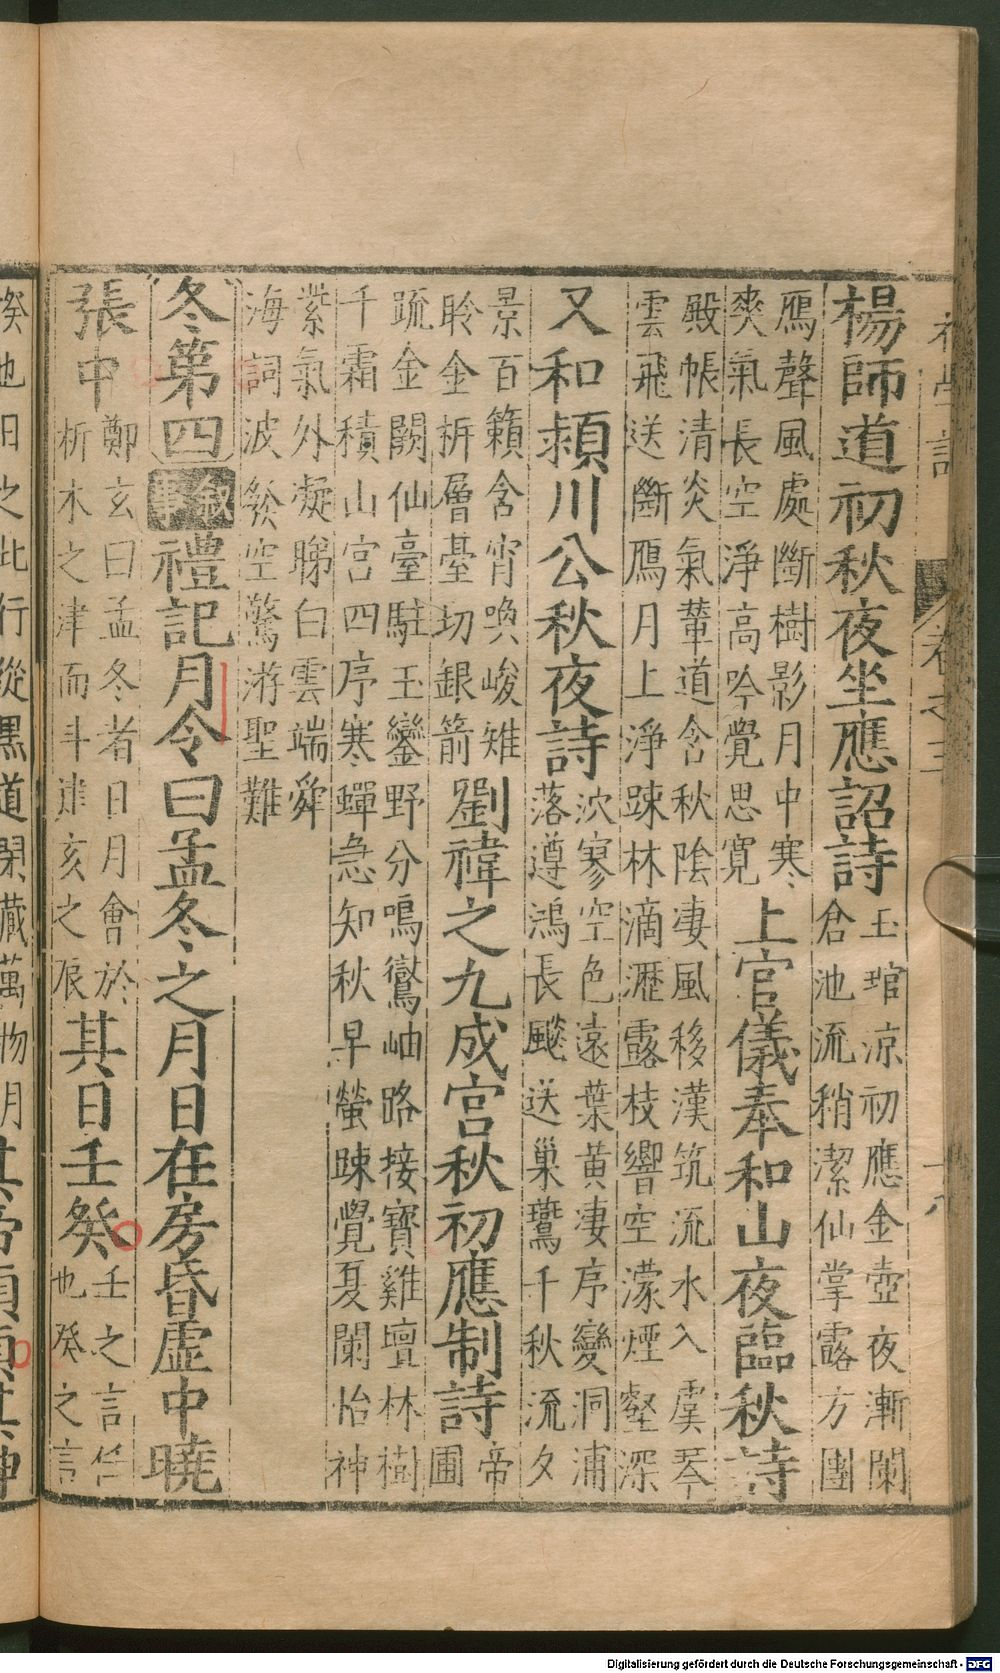 楊師道初秋夜坐應詔詩
玉琯凉初應金壺夜漸闌
倉池流稍潔仙掌露方團
鴈聲風處斷樹影月中寒
爽氣長空淨高吟覺思寛
上官儀奉和山夜臨秋詩
殿帳清炎氣輦道含秋陰凄風移漢筑流水入虞琴
雲飛送斷鴈月上淨踈林滴瀝露枝響空濛煙壑深
又和頴川公秋夜詩
泬寥空色遠葉黄凄序變洞浦
落遵鴻長飈送巢鷰千秋流夕
景百籟含宵喚峻雉
聆金柝層臺切銀箭
劉禕之九成宫秋初應制詩
帝
圃
疏金闕仙臺駐玉鑾野分鳴鸑岫路接寶雞壇林樹
千霜積山宫四序寒蟬急知秋早螢踈覺夏闌怡神
紫氣外凝睇白雲端舜
海詞波發空驚游聖難
冬第四
叙事
禮記月令曰孟冬之月日在房昏虛中曉
張中
鄭玄曰孟冬者日月會於
析木之津而斗建亥之辰
其日壬癸
壬之言任
也癸之言
揆也日之此行從黒道閉藏萬物月
其帝顓頊其神
卷之三
十八
Digitalisierung gefördert durch die Deutsche Forschungsgemeinschaft - DFG